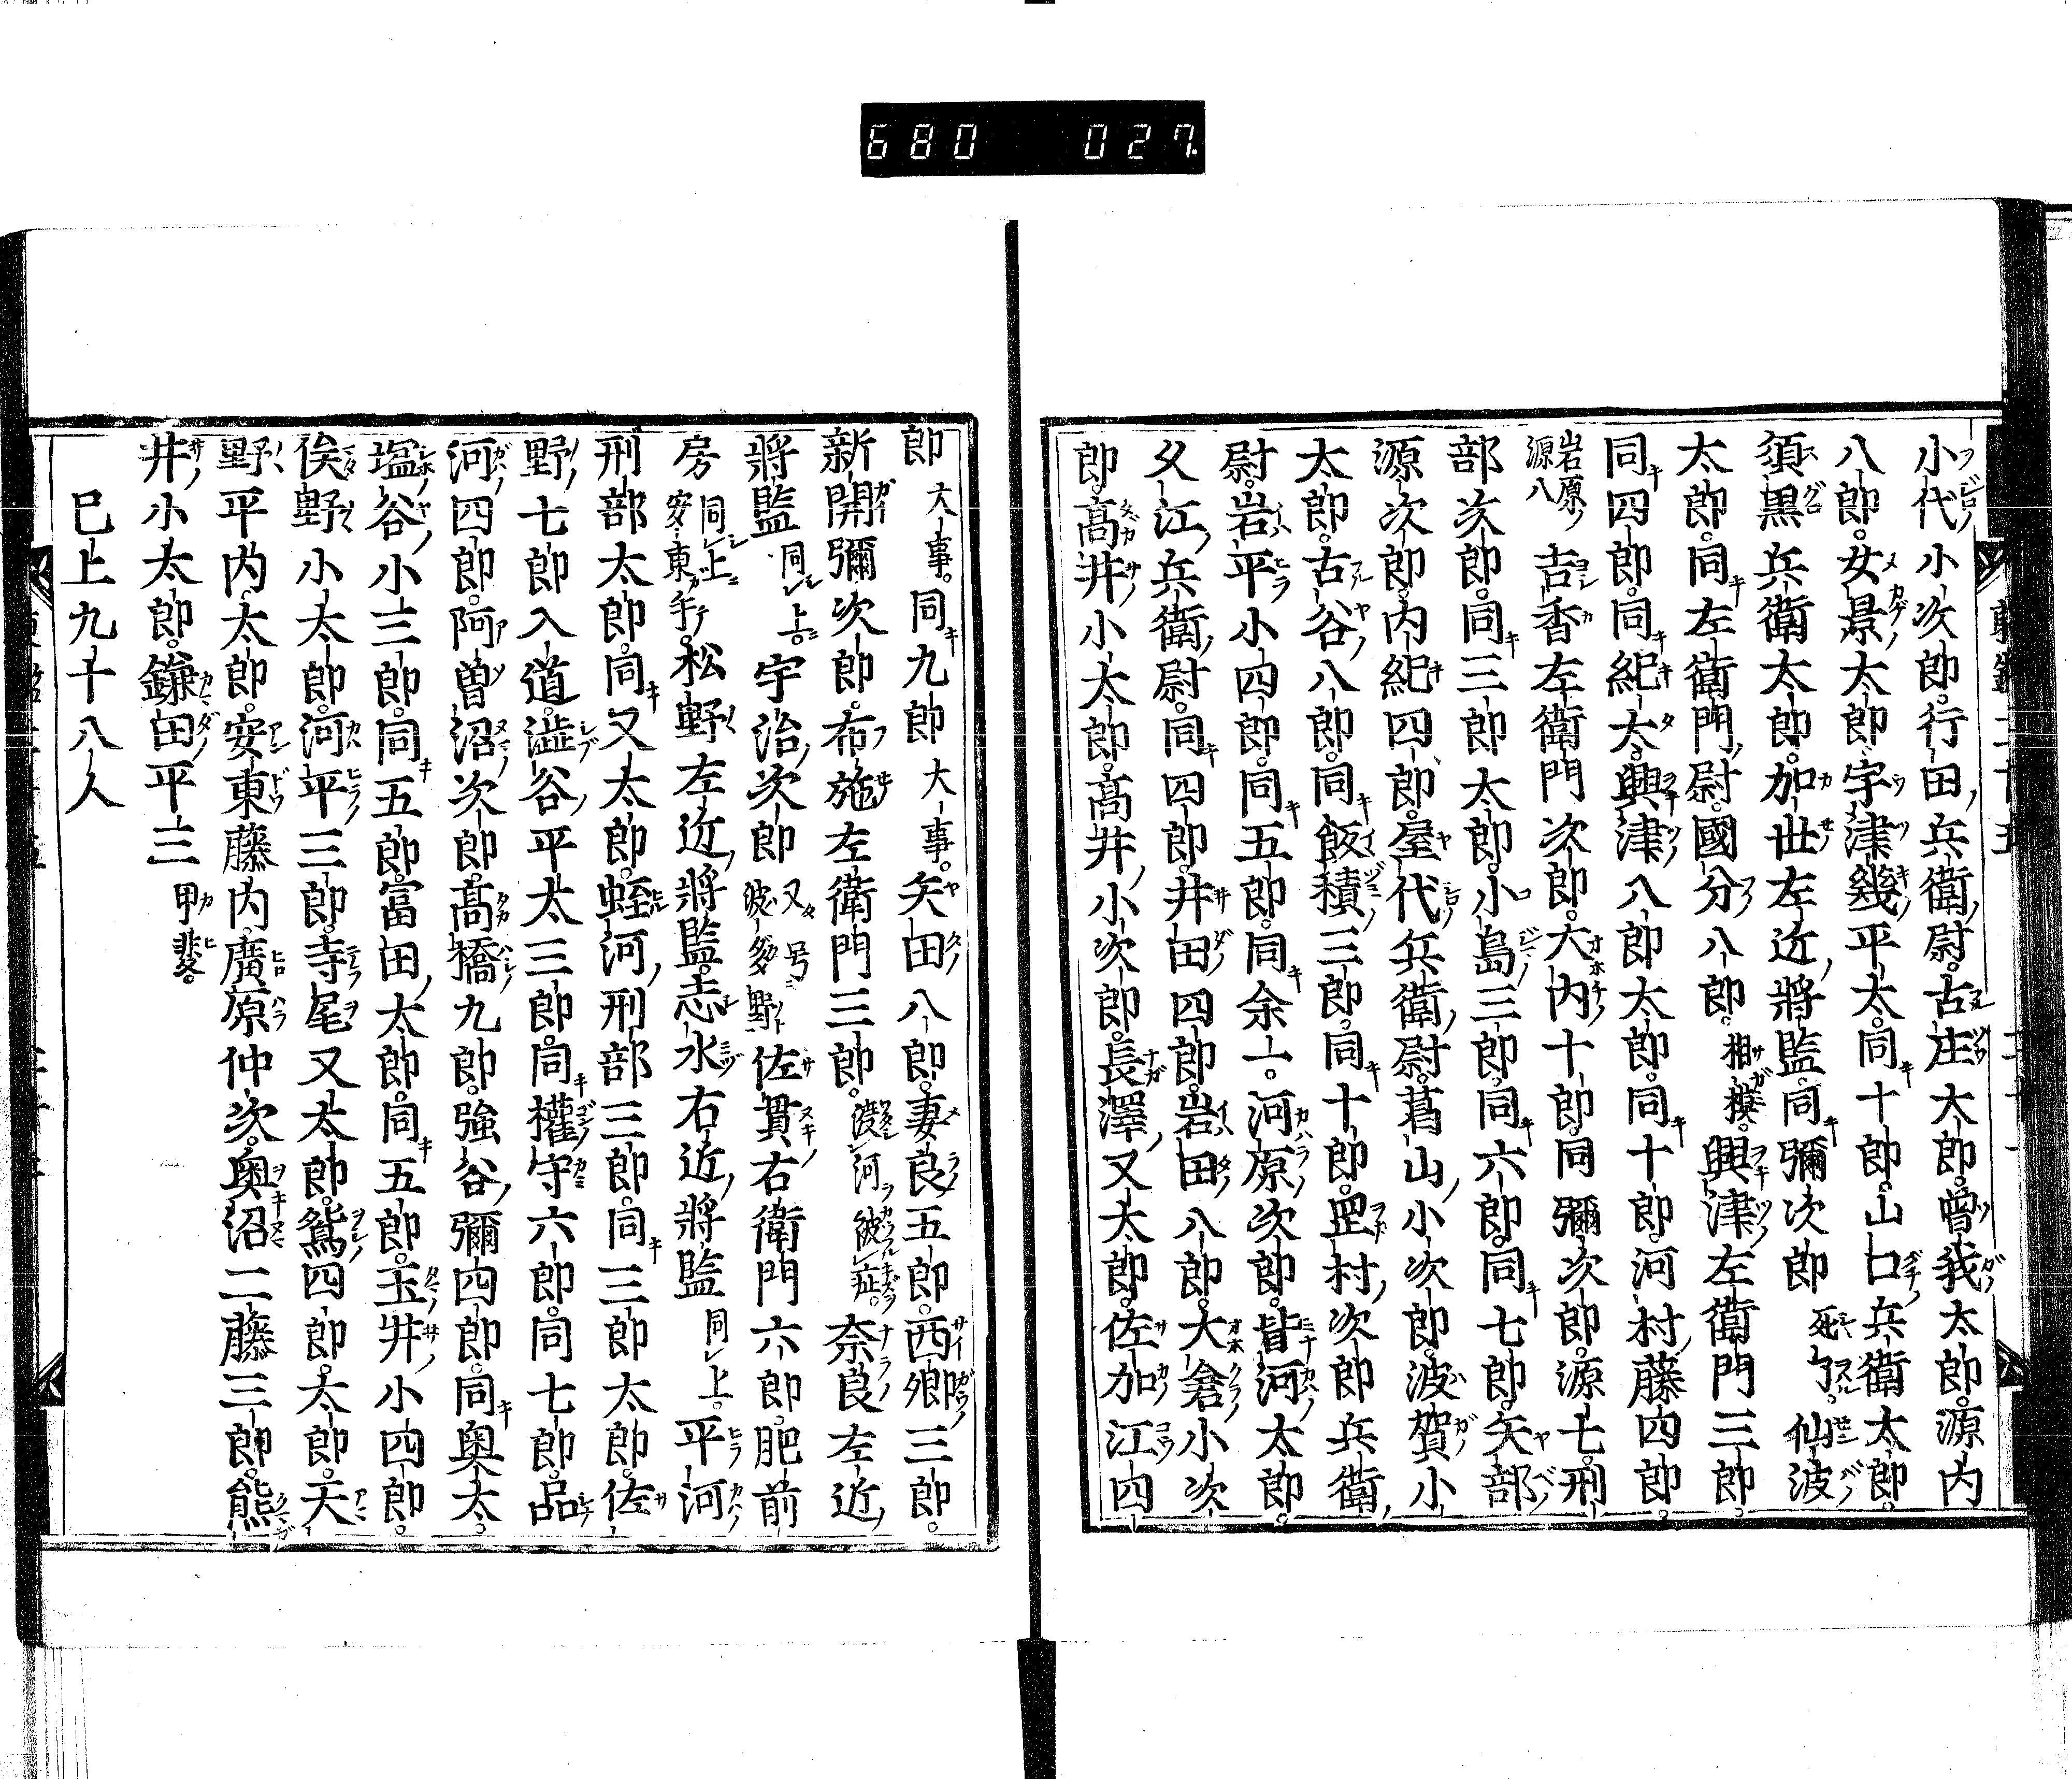 680 027
小代小次郎。行田兵衛尉。古庄太郎。曾我太郎。源内
八郎。女景太郎。宇津幾平太。同十郎。山口兵衛太郎。
須黒兵衛太郎。加世左近將監。同彌次郎死了。仙波
太郎。同左衛門尉。國分八郎。相摸。興津左衛門三郎。
同四郎。同紀太。興津八郎太郎。同十郎。河村藤四郎。
岩原源八吉香左衛門次郎。大内十郎。同彌次郎。源七。刑
部次郎。同三郎太郎。小島三郎。同六郎。同七郎。矢部
源次郎。内紀四郎。屋代兵衛尉。葛山小次郎。波賀小
太郎。古谷八郎。同飯積三郎。同十郎。罡村次郎兵衛
尉。岩平小四郎。同五郎。同余一。河原次郎。皆河太郎。
父江兵衛尉。同四郎。井田四郎。岩田八郎。大倉小次
郎。髙井小太郎。髙井小次郎。長澤又太郎。佐加江四
郎大事。同九郎大事。矢田八郎。妻良五郎。西郷三郎。
新開彌次郎。布施左衛門三郎。渡河被疵。奈良左近
將監同上。宇治次郎又号波多野佐貫右衛門六郎。肥前
房同上安東手。松野左近將監。志水右近將監同上。平河
刑部太郎。同又太郎。蛭河刑部三郎。同三郎太郎。佐
野七郎入道。澁谷平太三郎。同權守六郎。同七郎。品
河四郎。阿曽沼次郎。髙橋九郎。強谷彌四郎。同奥太。
塩谷小三郎。同五郎。富田太郎。同五郎。玉井小四郎。
俟野小太郎。河平三郎。寺尾又太郎。鴛四郎。太郎。天
野平内太郎。安東藤内。廣原仲次。奥沼二藤三郎。熊
井小太郎。鎌田平三甲斐。
巳上九十八人